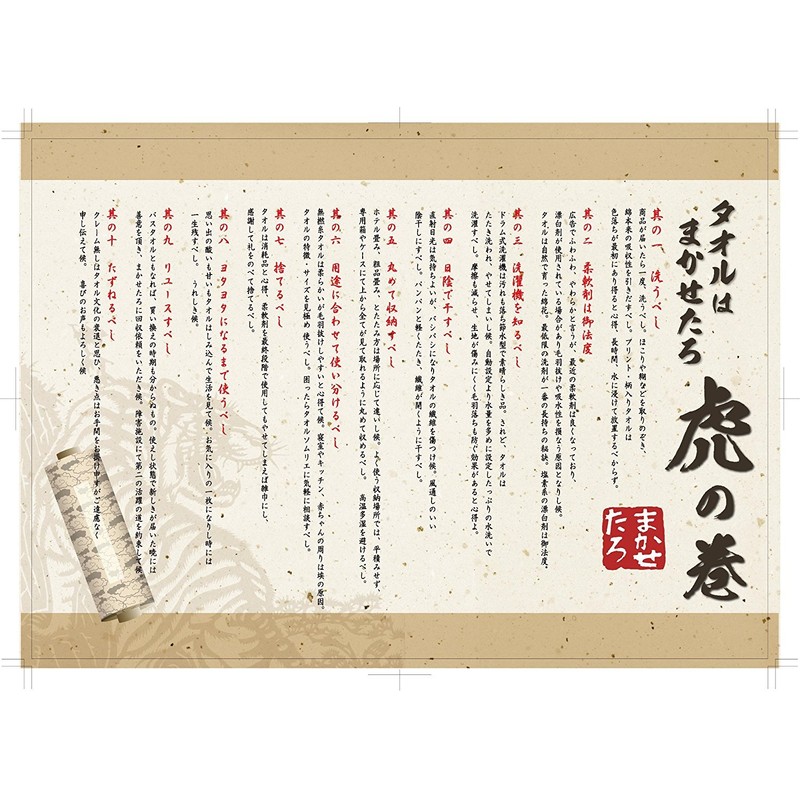 タオルは
まかせたろ
虎の巻
まかせ
たろ
其の一 洗うべし
商品が届いたら一度、洗うべし。ほこりや糊などを取りのぞき、
綿本来の吸収性を引きだすべし。プリント・柄入りタオルは
色落ちが最初にあり得ると心得、長時間、水に浸けて放置するべからず。
其の二 柔軟剤は御法度
広告でふわふわ、やわらかと言うが、最近の柔軟剤は良くなっており、
漂白剤が使用されている場合があり毛羽抜けや吸水性を損なう原因となりし候。
タオルは自然で育った綿花。最低限の洗剤が一番の長持ちの秘訣。塩素系の漂白剤は御法度。
其の三 洗濯機を知るべし
ドラム式洗濯機は汚れも落ち節水型で素晴らしき品。されど、タオルは
たたき洗われ、やせてしまいし候。自動設定より水量を多めに設定したっぷりの水洗いで
洗濯すべし。摩擦も減らせ、生地が傷みにくく毛羽落ちも防ぐ効果があると心得よ。
其の四 日陰で干すべし
直射日光は気持ちよいが、バシバシになりタオルの繊維を傷つけ候。風通しのいい
陰干しにすべし。パンパンと軽くたたき、繊維が開くように干すべし。
其の五 丸めて収納すべし
ホテル畳み、粗品畳み、とたたみ方は場所に応じて違いし候。よく使う収納場所では、平積みせず、
専用箱やケースにて上から全てが見て取れるように丸めて収めるべし。 高温多湿を避けるべし。
其の六 用途に合わせて使い分けるべし
無撚糸タオルは柔らかいが毛羽抜けしやすいと心得て候。寝室やキッチン、赤ちゃんの周りは埃の原因。
タオルの特徴・サイズを見極め使うべし。困ったらタオルソムリエに気軽に相談すべし。
其の七 捨てるべし
タオルは消耗品と心得、柔軟剤を最終段階で使用してもやせてしまえば雑巾にし、
感謝して礼をのべて捨てるべし。
其の八 ヨタヨタになるまで使うべし
思い出の酸いも甘いもタオルはしみ込んで生活を見て候。お気に入りの一枚になりし時には
一生残すべし。 うれしき候。
其の九 リユースすべし
バスタオルともなれば、買い換えの時期も分からぬもの。使えし状態で新しきが届いた暁には
善意を頂き、まかせたろに回収依頼をいただき候。障害施設にて第二の活躍の道を約束して候。
其の十 たずねるべし
クレーム無しはタオル文化の衰退と思ひ、悪き点はお手間をお掛け申すがご遠慮なく
申し伝えて候。 喜びのお声もよろしく候。